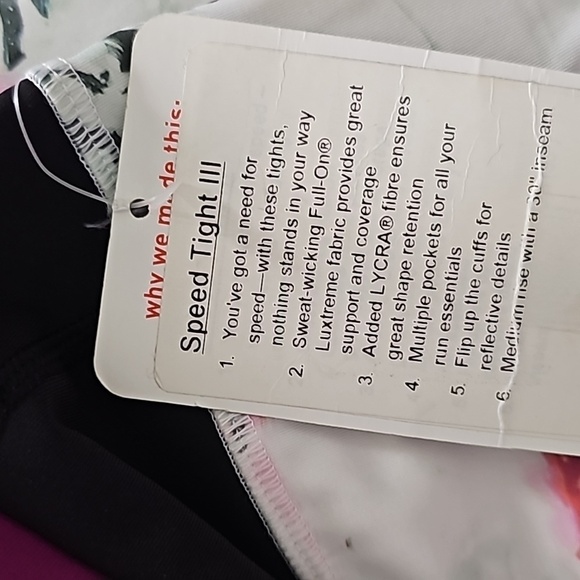 why we made this:
Speed Tight III
1. You've got a need for
speed—with these tights,
nothing stands in your way
2. Sweat-wicking Full-On®
Luxtreme fabric provides great
support and coverage
3. Added LYCRA® fibre ensures
great shape retention
4. Multiple pockets for all your
run essentials
5. Flip up the cuffs for
reflective details
6. Medium rise with a 30" inseam